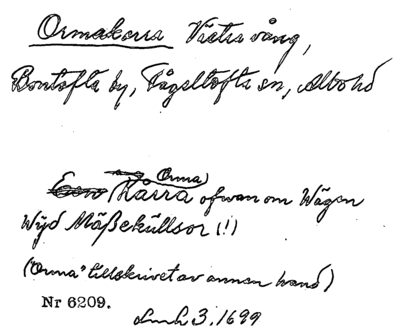 Ormakorra Västra vång,
Bontofta by, Fågeltofta sn, Albo hd
Orma)
Kårra ofwan om Wägen
Wijd Mäßekullsor (!)
("Orma" tillskrivet av annan hand)
Nr 6209.
Lmh 3, 1699